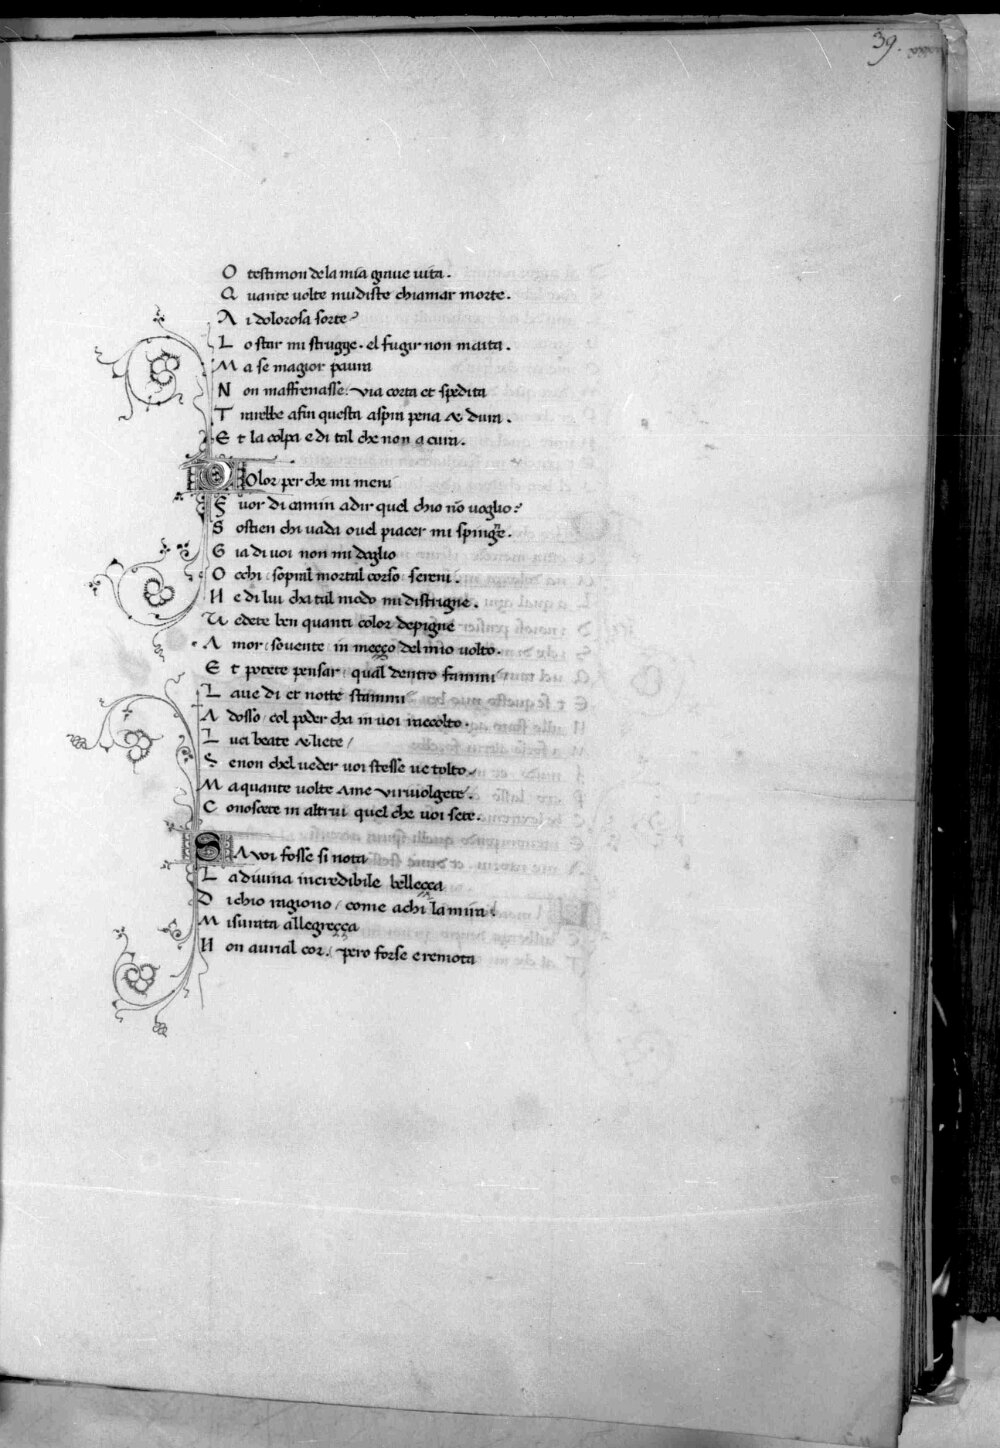 39.
O testimon de la mia graue uita.
Q uante uolte mudiste chiamar morte.
A i dolorosa sorte?
L o star mi strugge. el fugir non maita.
M a se magior paura
N on maffrenasse: via corta et spedita
T rarebbe afin questa aspra pena & dura.
E t la colpa e di tal che non a cura.
D olor per che mi meni
F uor di camin adir quel chio nō uoglio?
S ostien chi uada ouel piacer mi spinge.
G ia di uoi non mi doglio
O cchi / sopral mortal corso / sereni.
N e di lui cha tal modo mi distrigne.
U edete ben quanti color depigne
A mor / souente in mezzo del mio uolto.
E t potete pensar / qual dentro fammi
L aue di et notte stammi
A dosso / col poder cha in uoi raccolto.
L uci beate & liete /
S enon chel ueder uoi stesse ue tolto /
M a quante uolte Ame vi riuolgete.
C onoscete in altrui quel che uoi sete.
S A uoi fosse si nota
L a diuina incredibile bellezza
D ichio ragiono / come a chi la mira:
M isurata allegrezza
N on auria l cor. / pero forse e remota